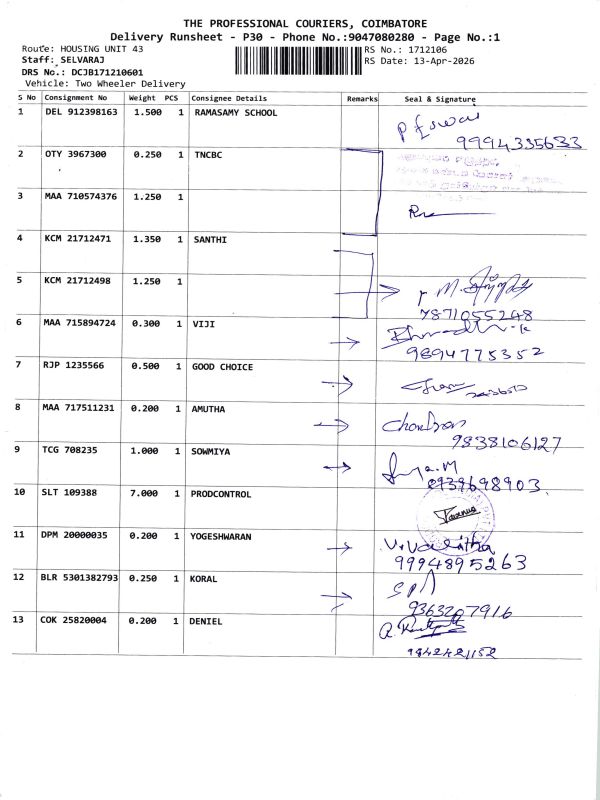 THE PROFESSIONAL COURIERS, COIMBATORE
Delivery Runsheet - P30 - Phone No.:9047080280 - Page No.:1
Route: HOUSING UNIT 43
RS No.: 1712106
Staff: SELVARAJ
RS Date: 13-Apr-2026
DRS No.: DCJB171210601
Vehicle: Two Wheeler Delivery
S No Consignment No Weight PCS Consignee Details Remarks Seal & Signature
1 DEL 912398163 1.500 1 RAMASAMY SCHOOL
9994335633
2 OTY 3967300 0.250 1 TNCBC
3 MAA 710574376 1.250 1
4 KCM 21712471 1.350 1 SANTHI
5 KCM 21712498 1.250 1
7871055248
6 MAA 715894724 0.300 1 VIJI
9894775352
7 RJP 1235566 0.500 1 GOOD CHOICE
8 MAA 717511231 0.200 1 AMUTHA
Chandran
9838106127
9 TCG 708235 1.000 1 SOWMIYA
10 SLT 109388 7.000 1 PRODCONTROL
11 DPM 20000035 0.200 1 YOGESHWARAN
9994895263
12 BLR 5301382793 0.250 1 KORAL
9363207916
13 COK 25820004 0.200 1 DENIEL
9842421152